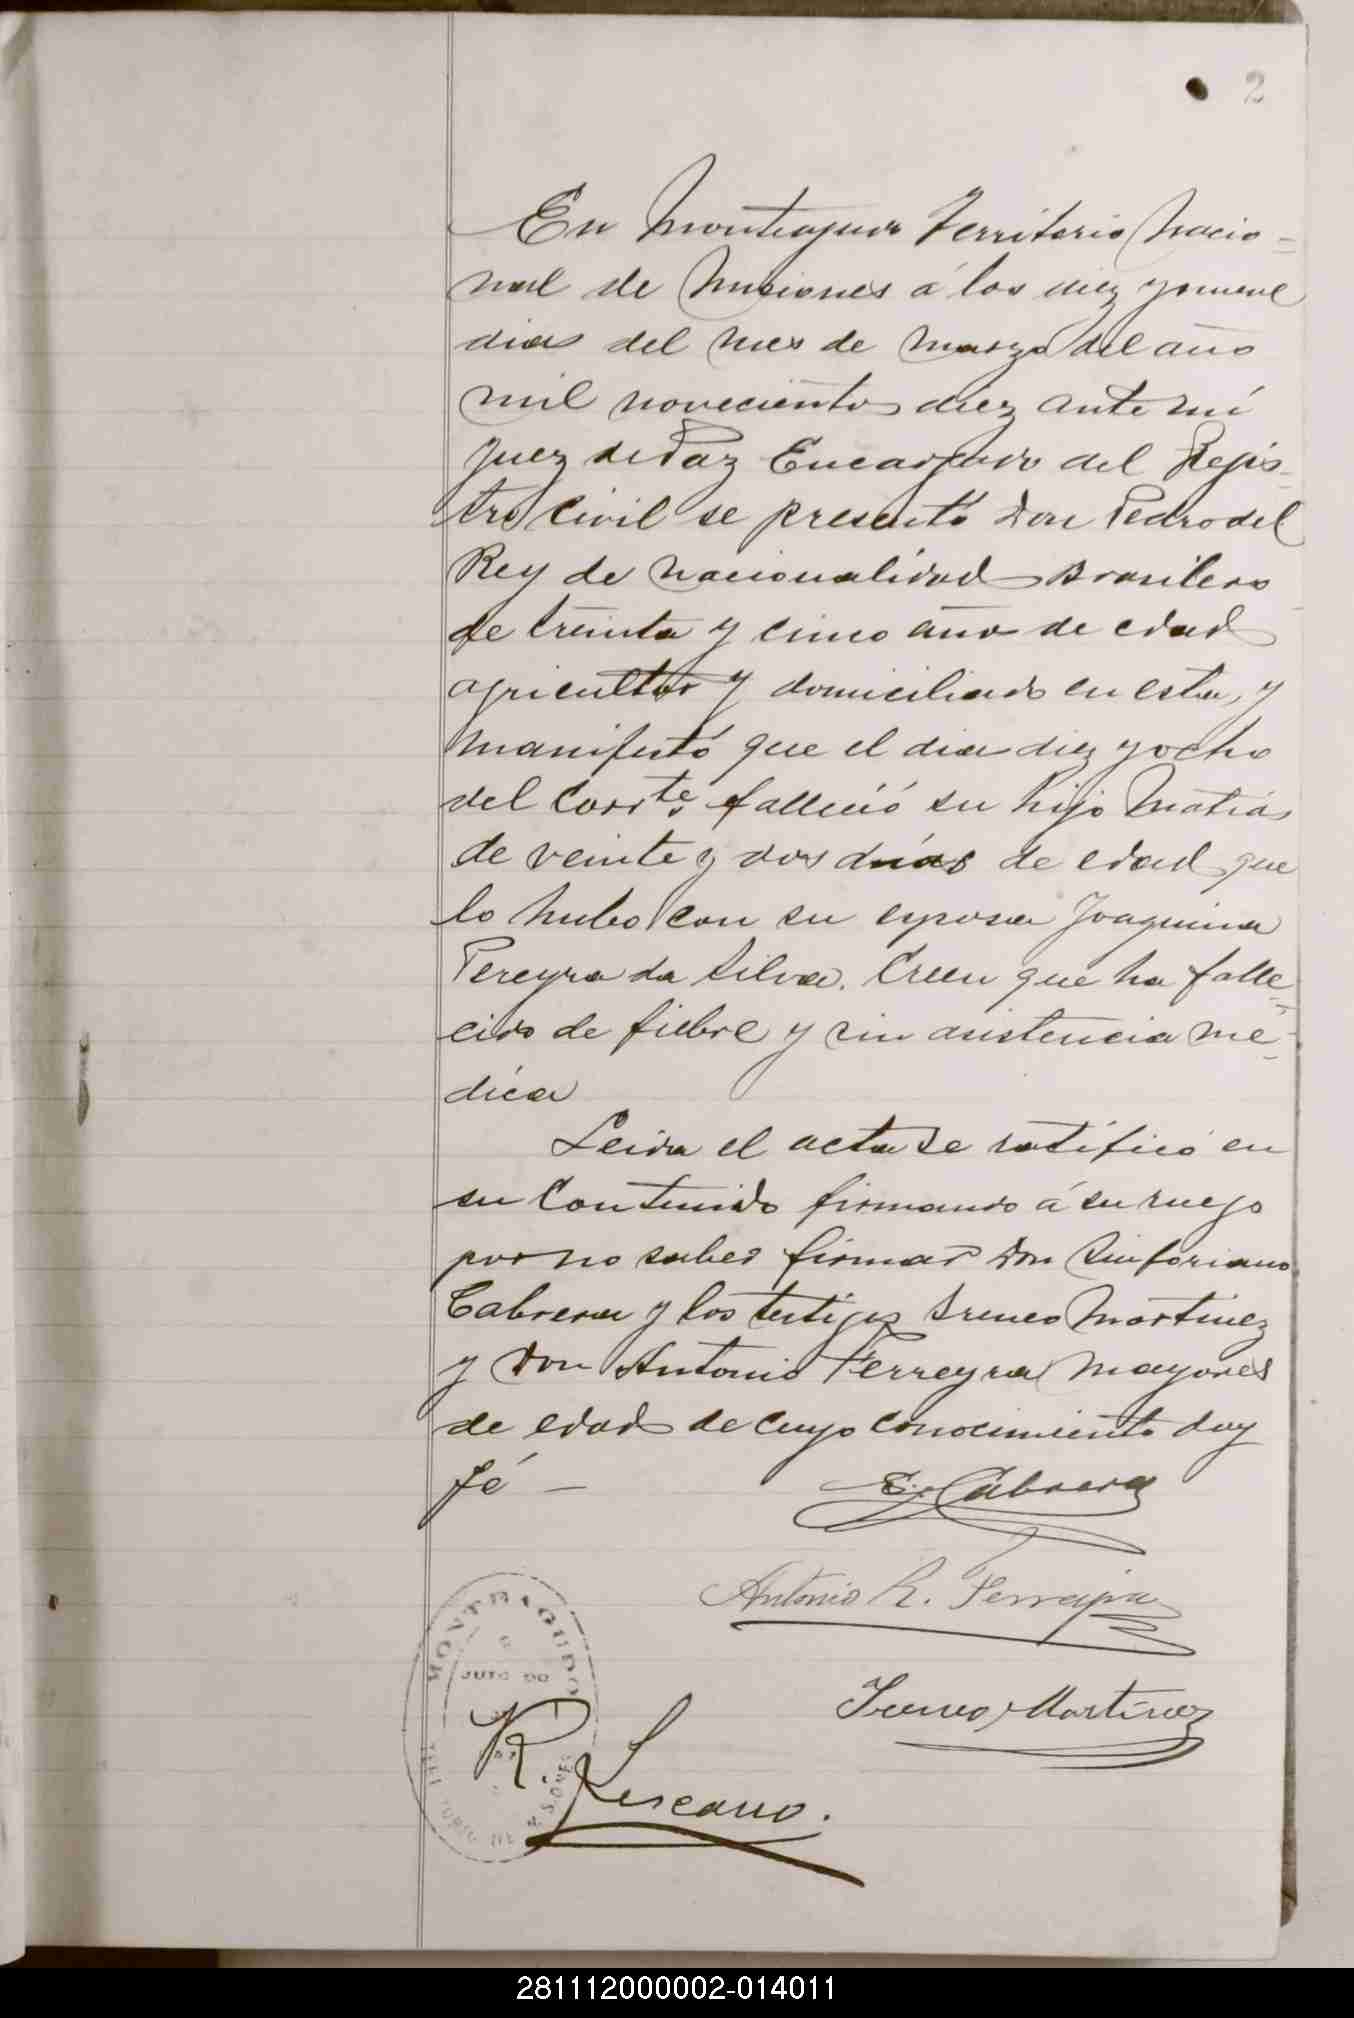 2
En Monteagudo Territorio Nacio=
nal de Misiones á los diez y nueve
dias del mes de Marzo del año
mil novecientos diez ante mí
Juez de Paz Encargado del Regis=
tro Civil se presentó Don Pedro del
Rey de nacionalidad Brasilero
de treinta y cinco años de edad
agricultor y domiciliado en esta, y
manifestó que el dia diez y ocho
del Corrte. falleció su hijo Matias
de veinte y dos dias de edad que
lo hubo con su esposa Joaquina
Pereyra da Silva. Creen que ha falle=
cido de fiebre y sin asistencia me=
dica
Leida el acta se ratificó en
su Contenido firmando á su ruego
por no saber firmar Don Sinforiano
Cabrera y los testigos Ireneo Martinez
y Don Antonio Ferreyra mayores
de edad de cuyo conocimiento doy
fé —
S. Cabrera
Antonio R. Ferreyra
MONTEAGUDO
JUZGADO
Ireneo Martinez
R. Lescano.
TERRITORIO DE MISIONES
281112000002-014011